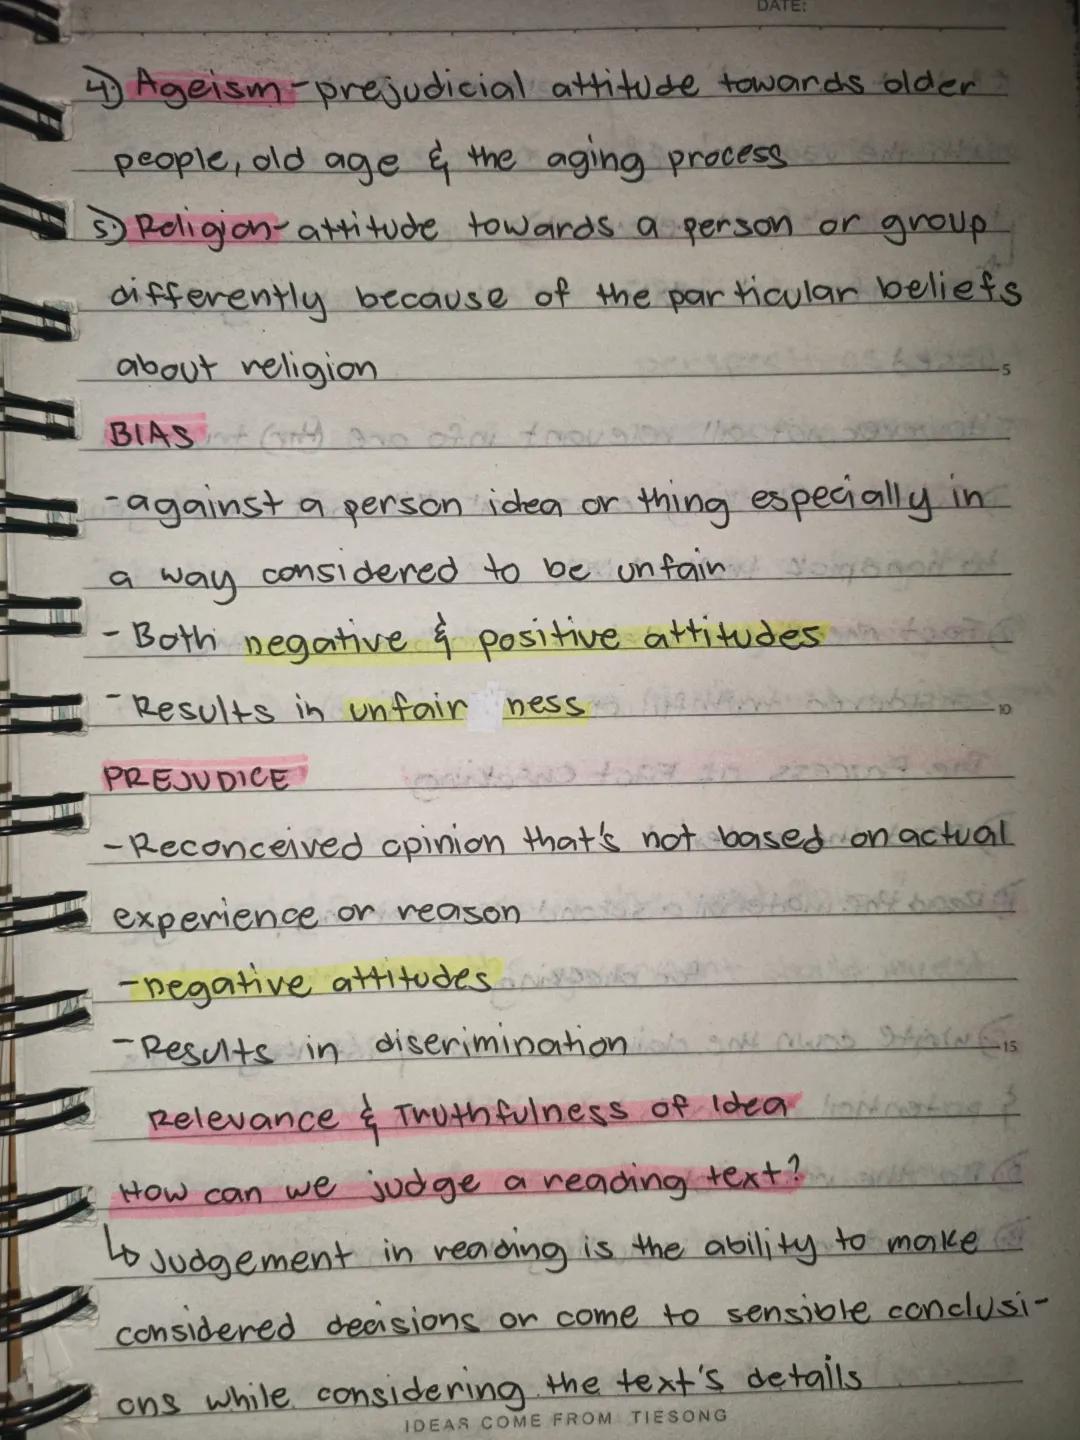 DATE:
4.) Ageism - prejudicial attitude towards older
people, old age & the aging process
5.) Religion - attitude towards a person or group
differently because of the particular beliefs
about religion
5
BIAS
- against a person idea or thing especially in
a way considered to be unfair
- Both negative & positive attitudes
- Results in unfair ness
10
PREJUDICE
- Reconceived opinion that's not based on actual
experience or reason
- negative attitudes
- Results in discrimination
15
Relevance & Truthfulness of Idea
How can we judge a reading text?
↳ Judgement in reading is the ability to make
considered decisions or come to sensible conclusi-
ons while considering the text's details
IDEAS COME FROM TIESONG